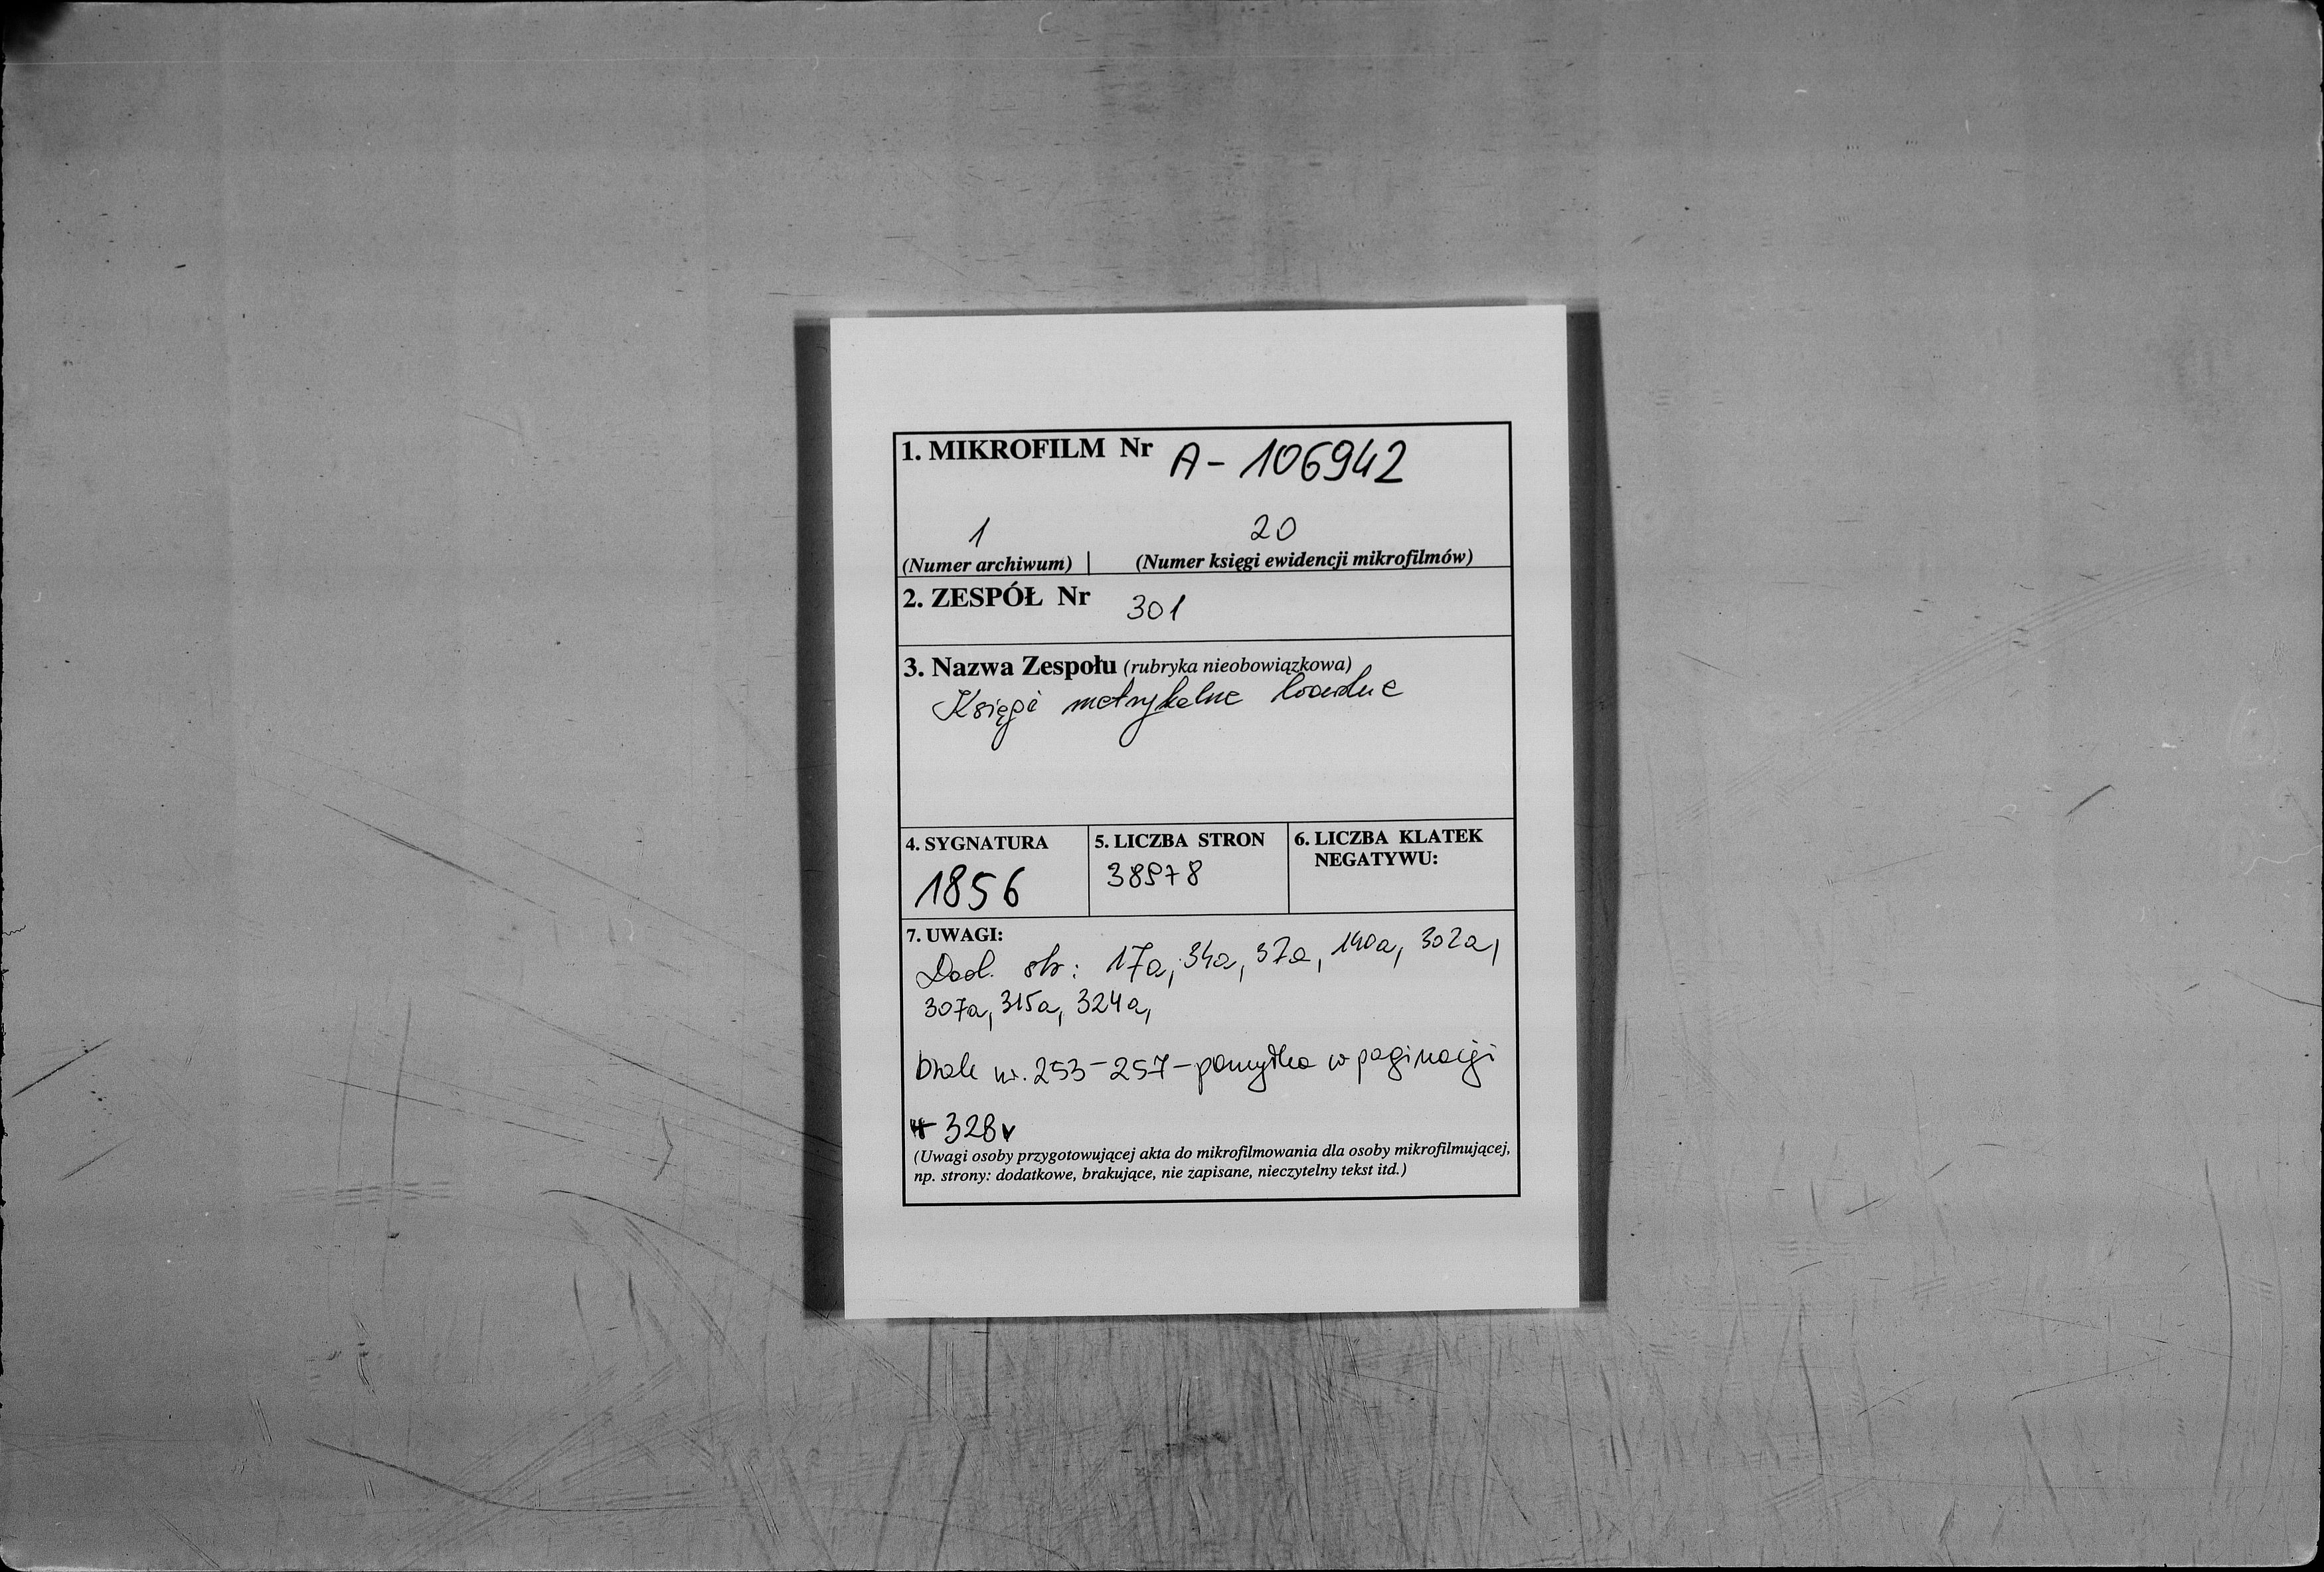 1. MIKROFILM Nr A - 106942
1 20
(Numer archiwum) | (Numer księgi ewidencji mikrofilmów)
2. ZESPÓŁ Nr 301
3. Nazwa Zespołu (rubryka nieobowiązkowa)
Księgi metrykalne
4. SYGNATURA 5. LICZBA STRON 6. LICZBA KLATEK
NEGATYWU:
1856
7. UWAGI:
Dod. str: 17a, 34a, 37a, 140a, 302a,
307a, 315a, 324a,
Brak nr. 253-257 - pomyłka w paginacji
328v
(Uwagi osoby przygotowującej akta do mikrofilmowania dla osoby mikrofilmującej,
np. strony: dodatkowe, brakujące, nie zapisane, nieczytelny tekst itd.)